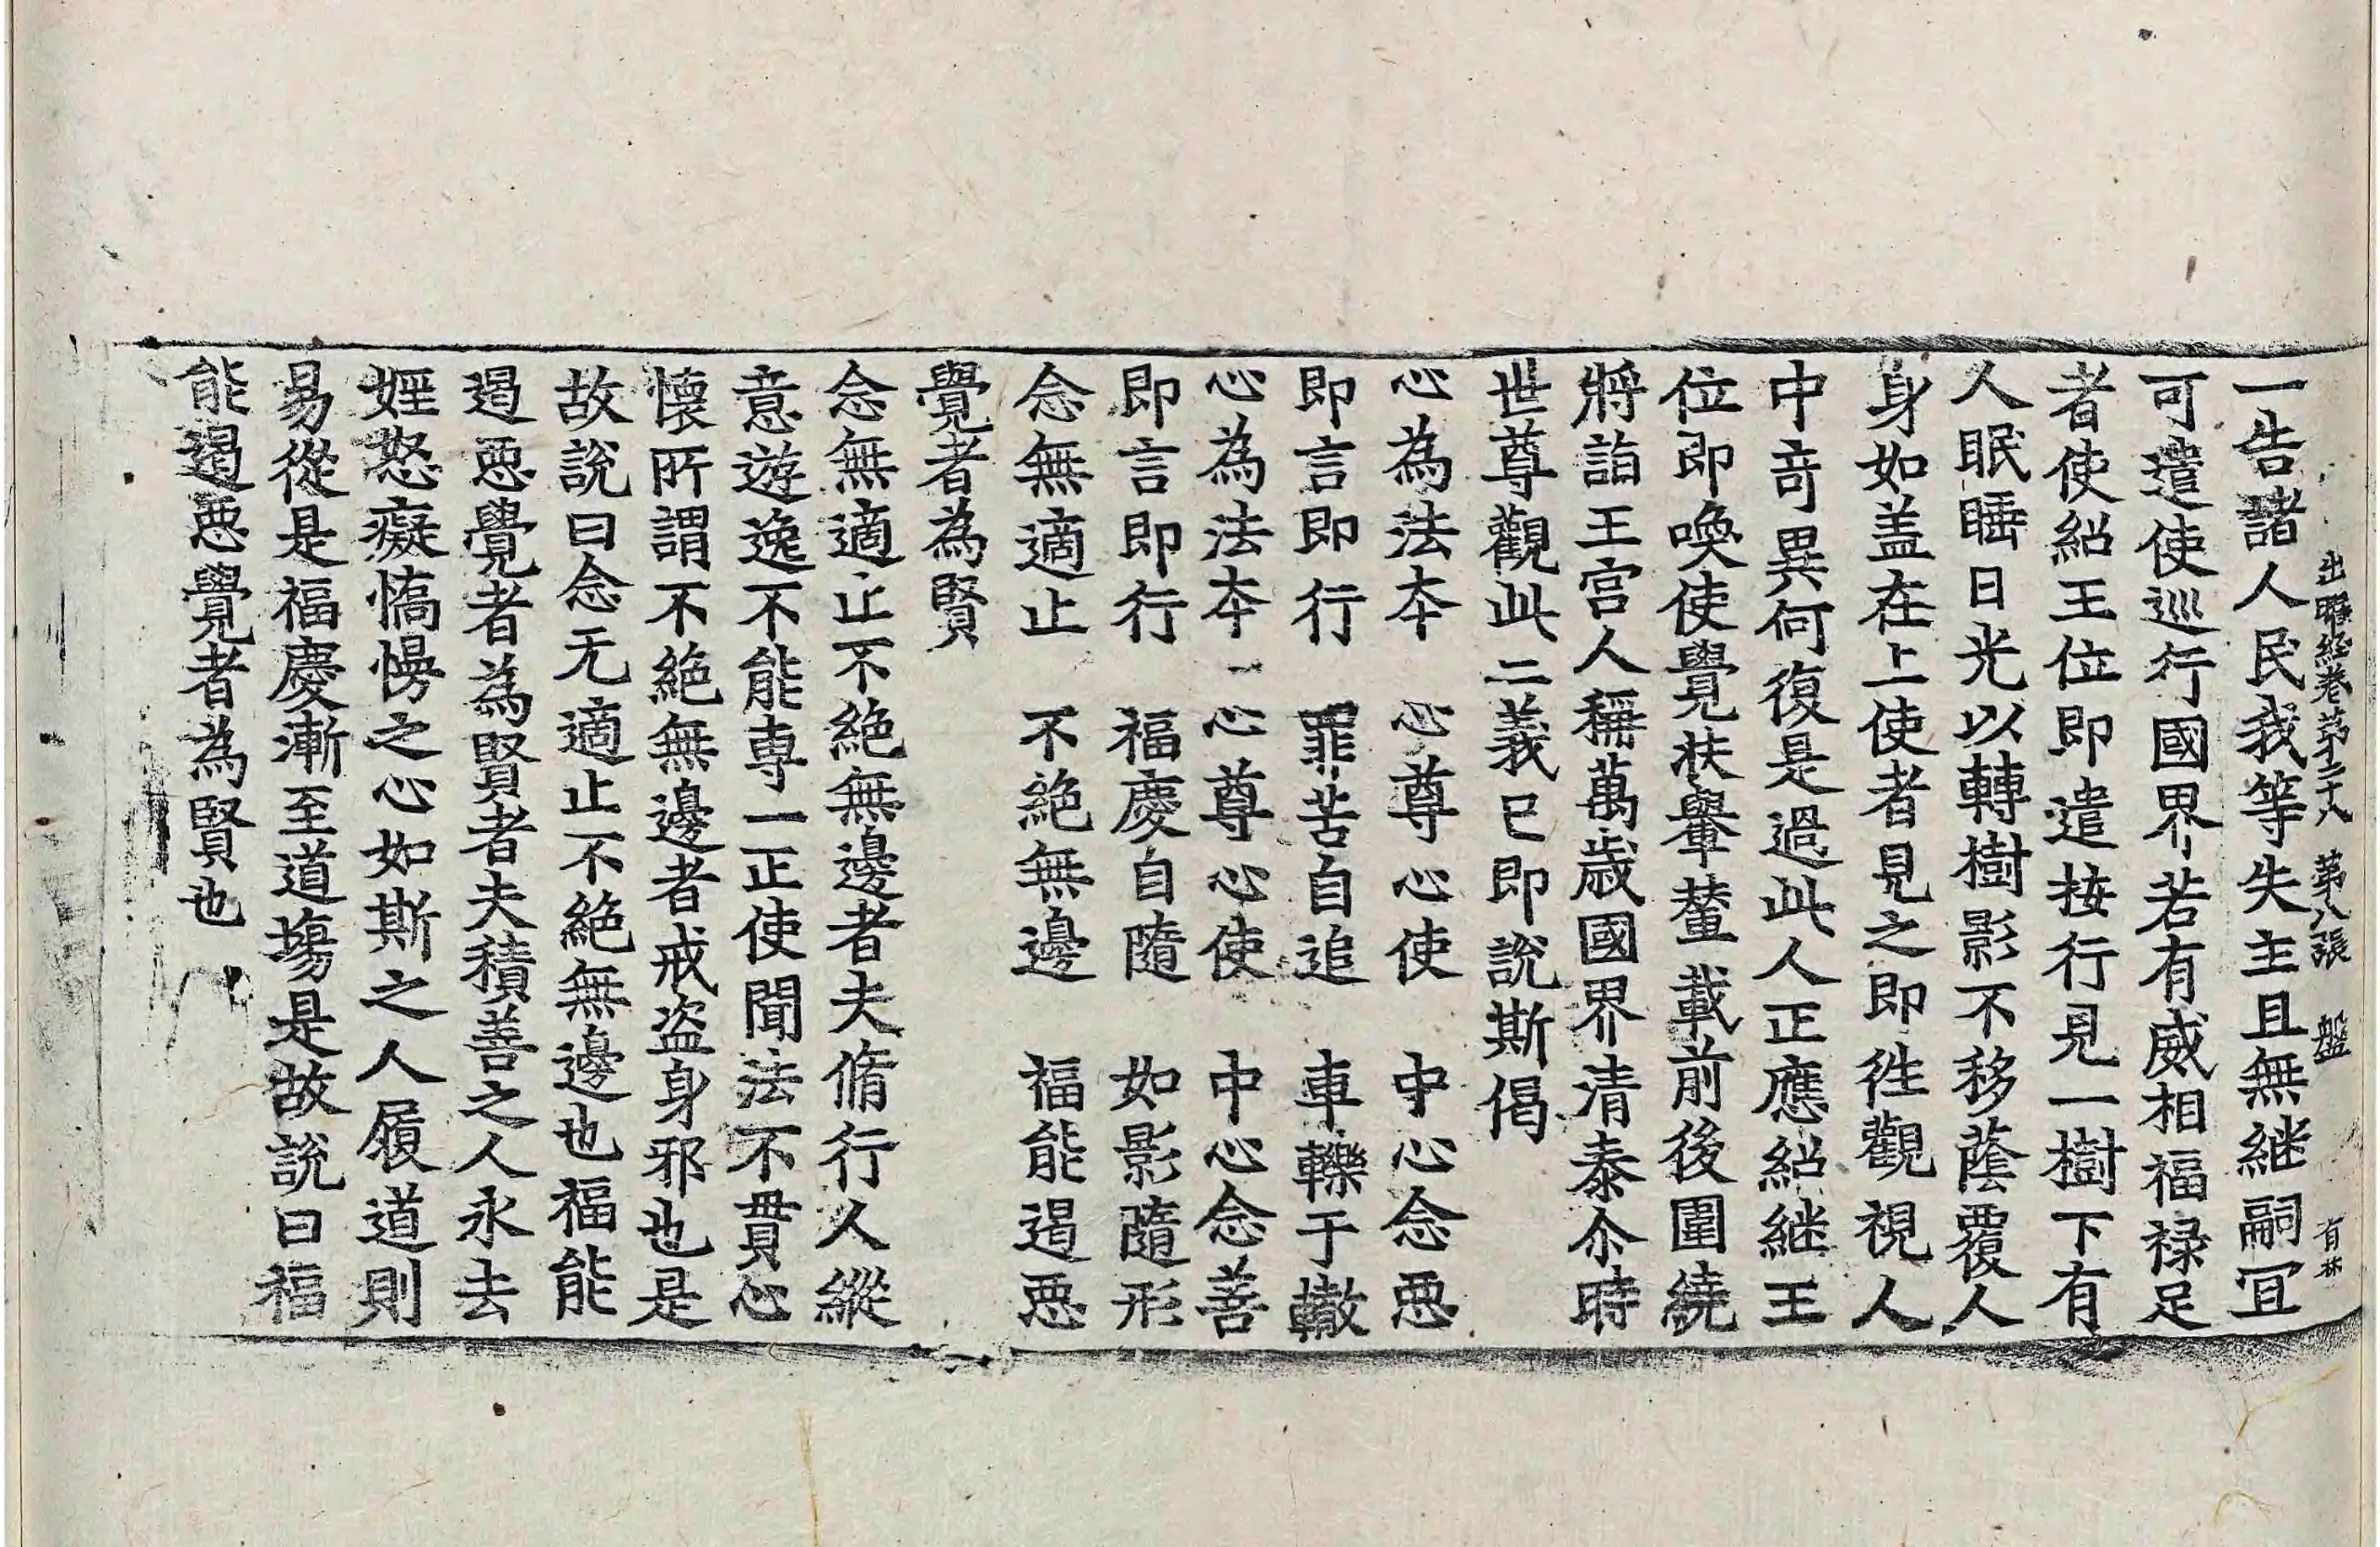 出曜經卷第二十八　第八張　盤　有林
一告諸人民我等失主且無継嗣冝
可遣使巡行國界若有威相福禄足
者使紹王位即遣按行見一樹下有
人眠睡日光以轉樹影不移蔭覆人
身如盖在上使者見之即徃觀視人
中奇異何復是過此人正應紹継王
位即喚使覺扶輿輦載前後圍繞
將詣王宫人稱萬歳國界清泰尒時
世尊觀此二義已即說斯偈
心為法夲　心尊心使　中心念惡
即言即行　罪苦自追　車轢于轍
心為法夲　心尊心使　中心念善
即言即行　福慶自隨　如影隨形
念無適止　不絶無邊　福能遏惡
覺者為賢
念無適止不絶無邊者夫脩行人縱
意遊逸不能専一正使聞法不貫心
懷所謂不絶無邊者戒盗身邪也是
故說曰念无適止不絶無邊也福能
遏惡覺者為賢者夫積善之人永去
婬怒癡憍慢之心如斯之人履道則
易從是福慶漸至道場是故說曰福
能遏惡覺者為賢也